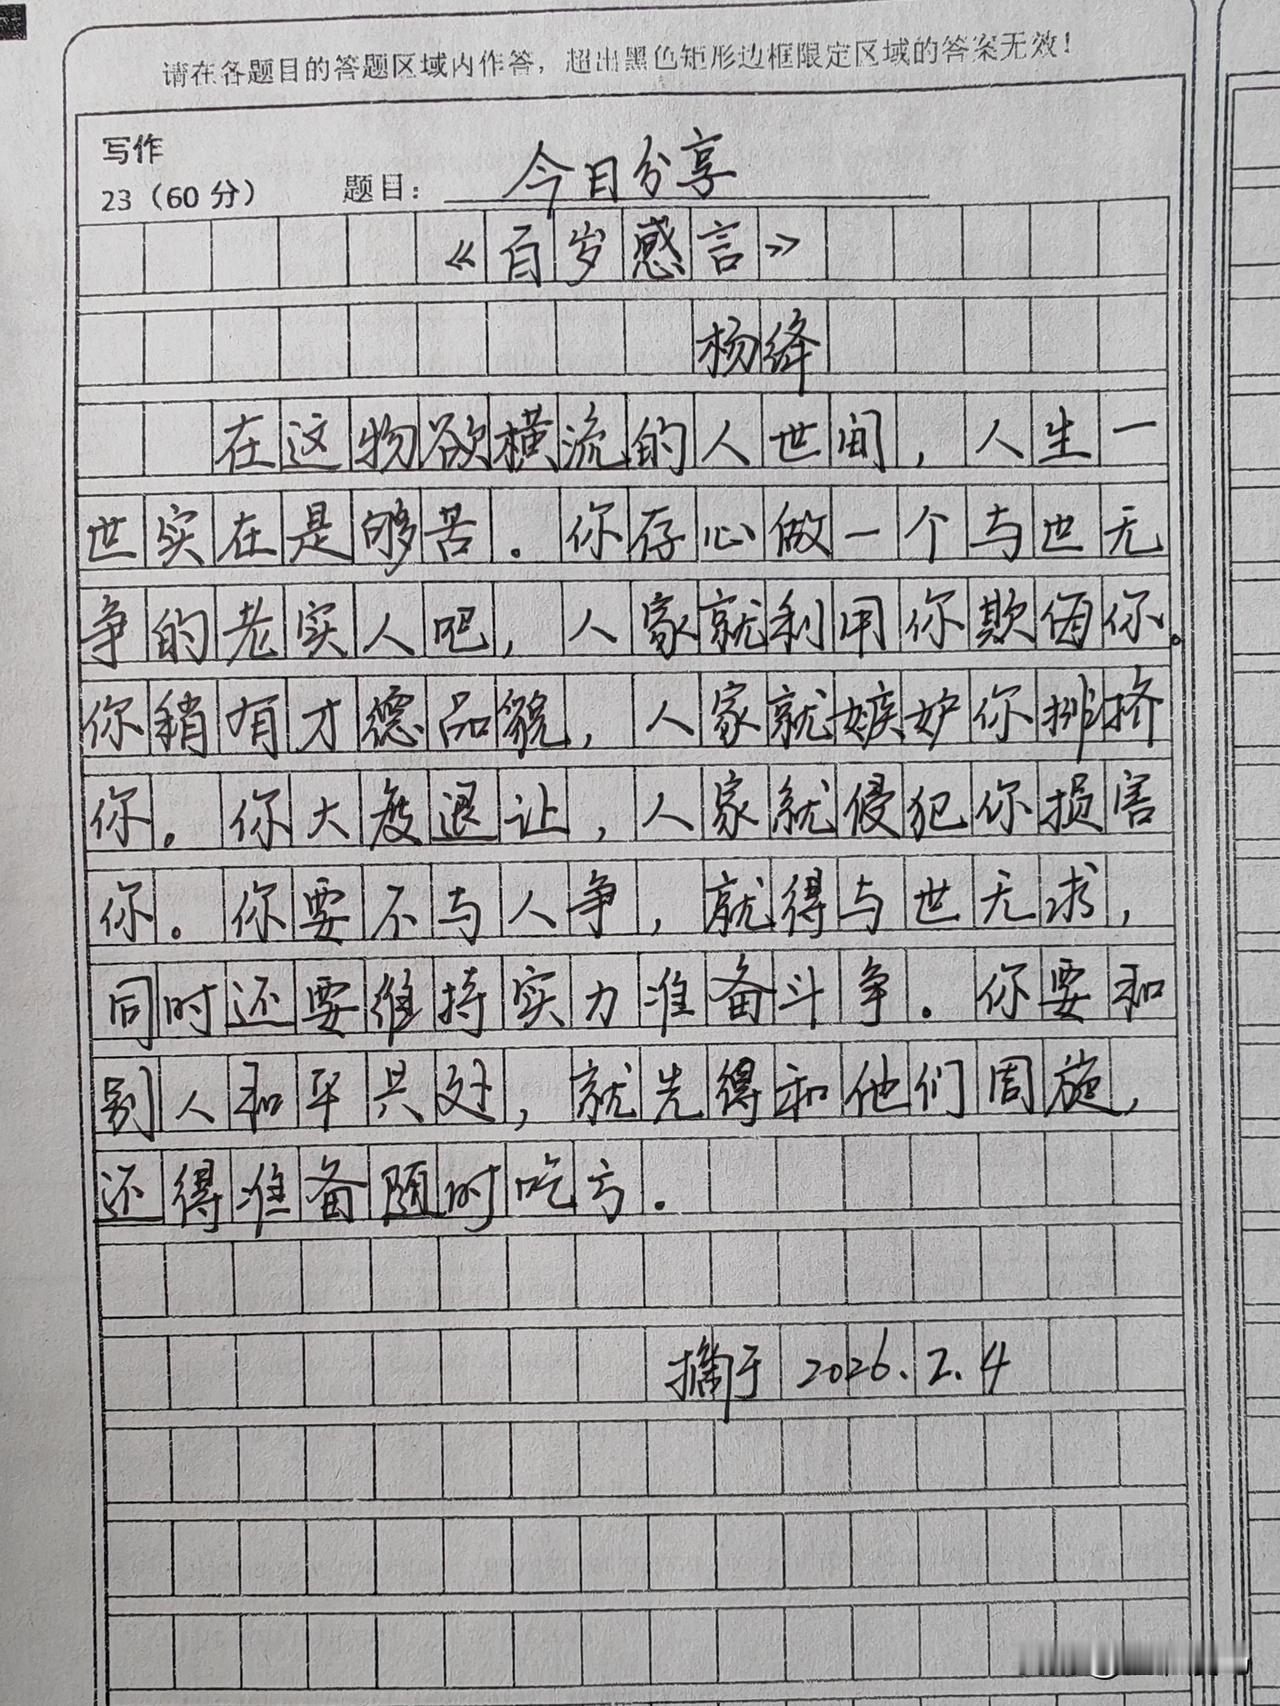 请在各题目的答题区域内作答，超出黑色矩形边框限定区域的答案无效！
写作
23（60分） 题目：今日分享
《百岁感言》
杨绛
在这物欲横流的人世间，人生一
世实在是够苦．你存心做一个与世无
争的老实人吧，人家就利用你欺侮你。
你稍有才德品貌，人家就嫉妒你排挤
你。你大度退让，人家就侵犯你损害
你。你要不与人争，就得与世无求，
同时还要维持实力准备斗争．你要和
别人和平共处，就先得和他们周旋，
还得准备随时吃亏．
摘于 2026.2.4